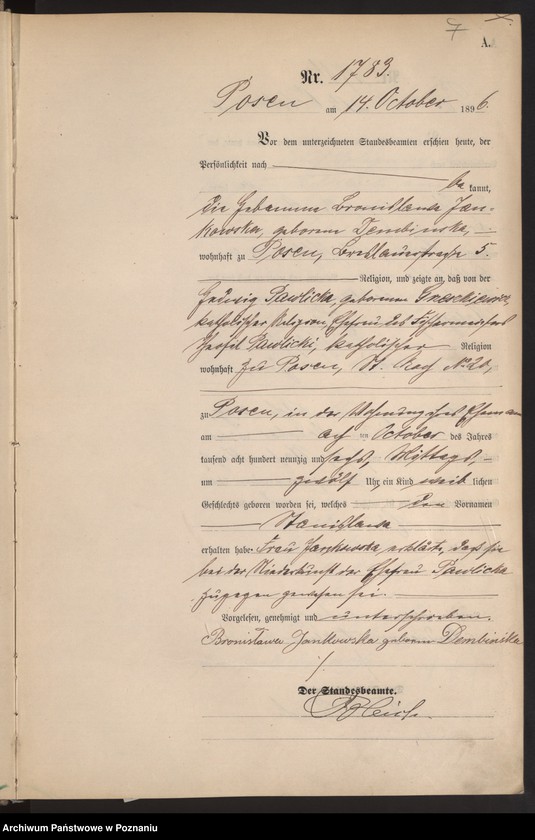 7
A.
Nr. 1783.
Posen am 14. October 1896.
Vor dem unterzeichneten Standesbeamten erschien heute, der
Persönlichkeit nach
be kannt,
die Hebamme Bronislawa Jan-
kowska, geborene Dembinska,
wohnhaft zu Posen, Breslauerstraße 5.
Religion, und zeigte an, daß von der
Hedwig Pawlicka, geborenen
katholischer Religion, Ehefrau des Tischlermeisters
Josef Pawlicki, katholischer Religion
wohnhaft zu Posen, St. No 20,
zu Posen, in der Wohnung ihres Ehemanns
am acht ten October des Jahres
tausend acht hundert neunzig und sechs, Mittags,
um zwölf Uhr, ein Kind weib lichen
Geschlechts geboren worden sei, welches den Vornamen
Stanislawa
erhalten habe. Frau Jankowska erklärte, daß sie
bei der Niederkunft der Ehefrau Pawlicka
zugegen gewesen sei.
Vorgelesen, genehmigt und unterschrieben.
Bronisława Jankowska geborene Dembinska
Der Standesbeamte.
Archiwum Państwowe w Poznaniu